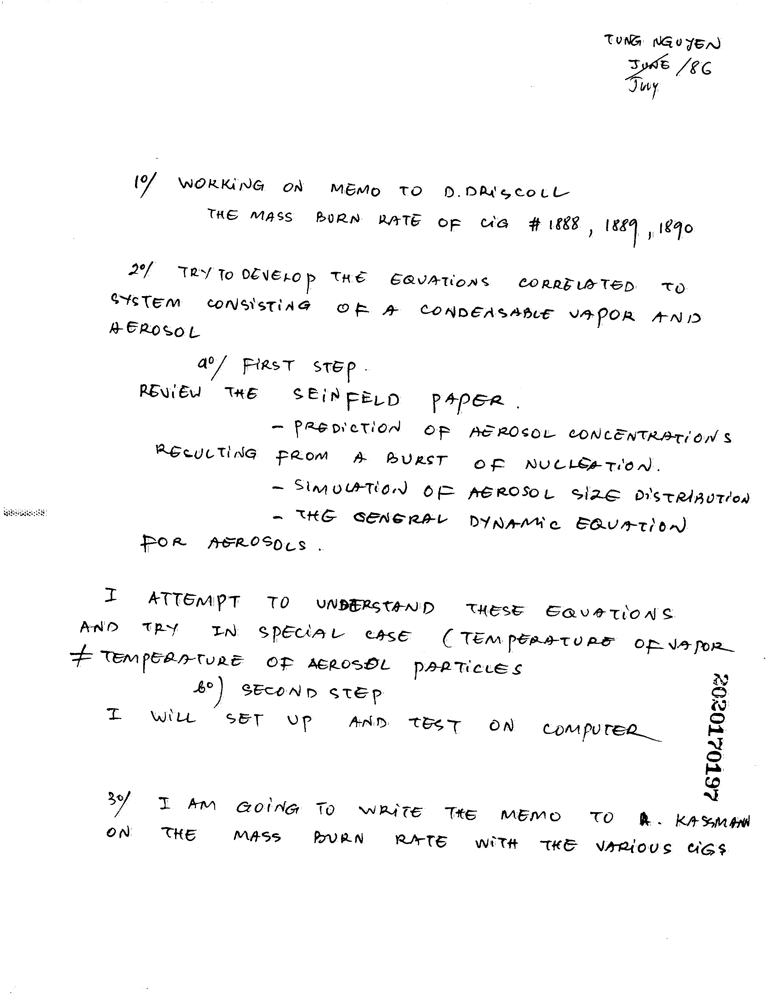 TUNG NGUYEN
JUNE /86
July
1º/ WORKING ON MEMO TO D.DRISCOLL
THE MASS BURN RATE OF CIG # 1888, 1889, 1890
2º/ TRY TO DEVELOP THE EQUATIONS CORRELATED TO
SYSTEM CONSISTING OF A CONDENSABLE VAPOR AND
AEROSOL
aº/ FIRST STEP.
REVIEW THE SEINFELD PAPER.
- PREDICTION OF AEROSOL CONCENTRATIONS
RECULTING FROM A BURST OF NUCLEATION.
- SIMULATION OF AEROSOL SIZE DISTRIBUTION
- THE GENERAL DYNAMIC EQUATION
FOR AEROSOLS.
I ATTEMPT TO UNDERSTAND THESE EQUATIONS
AND TRY IN SPECIAL CASE (TEMPERATURE OF VAPOR
≠ TEMPERATURE OF AEROSOL PARTICLES
bº) SECOND STEP
I WILL SET UP AND TEST ON COMPUTER
2020170197
3º/ I AM GOING TO WRITE THE MEMO TO A. KASSMANN
ON THE MASS BURN RATE WITH THE VARIOUS CIGS